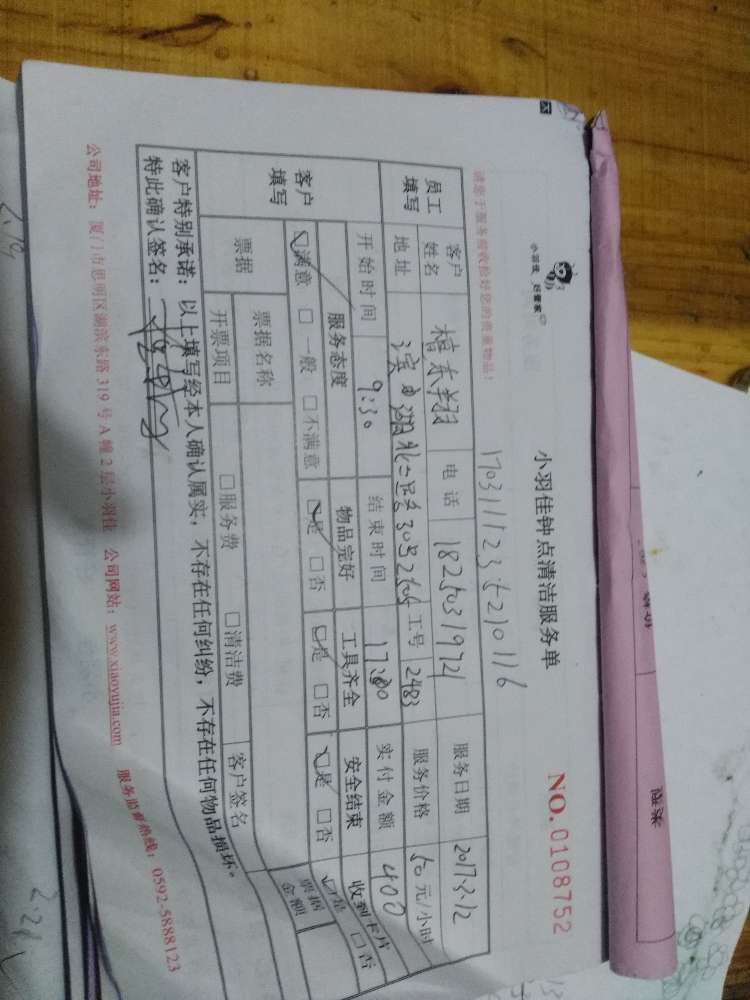 小羽佳 好管家
小羽佳钟点清洁服务单
NO. 0108752
请您于服务前收捡好您的贵重物品!
员工填写 客户姓名 电话 18250319721 服务日期 2017.3.12
地址 工号 2483 服务价格 50 元/小时
开始时间 9:30 结束时间 17:30 实付金额 400
客户填写 服务态度 物品完好 工具齐全 安全结束 收到卡片
☑满意 □一般 □不满意 ☑是 □否 ☑是 □否 ☑是 □否 ☑是 □否
票据 票据名称 客户签名 票据金额
开票项目 □服务费 □清洁费
客户特别承诺:以上填写经本人确认属实,不存在任何纠纷,不存在任何物品损坏。
特此确认签名:
公司地址:厦门市思明区湖滨东路 319 号 A 幢 2 层小羽佳 公司网站:www.xiaoyujia.com 服务监督热线:0592-5888123